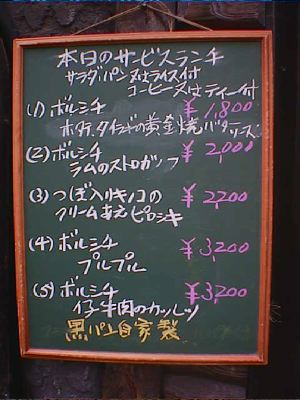 本日のサービスランチ
サラダ、パン又はライス付
コーヒー又はティー付
(1) ボルシチ ¥1,800
ホタテ、タイラギの黄金焼バターソース
(2) ボルシチ ¥2,000
ラムのストロガノフ
(3) つぼ入りキノコの ¥2,200
クリームあえピロシキ
(4) ボルシチ ¥3,200
プルプル
(5) ボルシチ ¥3,200
仔牛肉のカツレツ
黒パン自家製